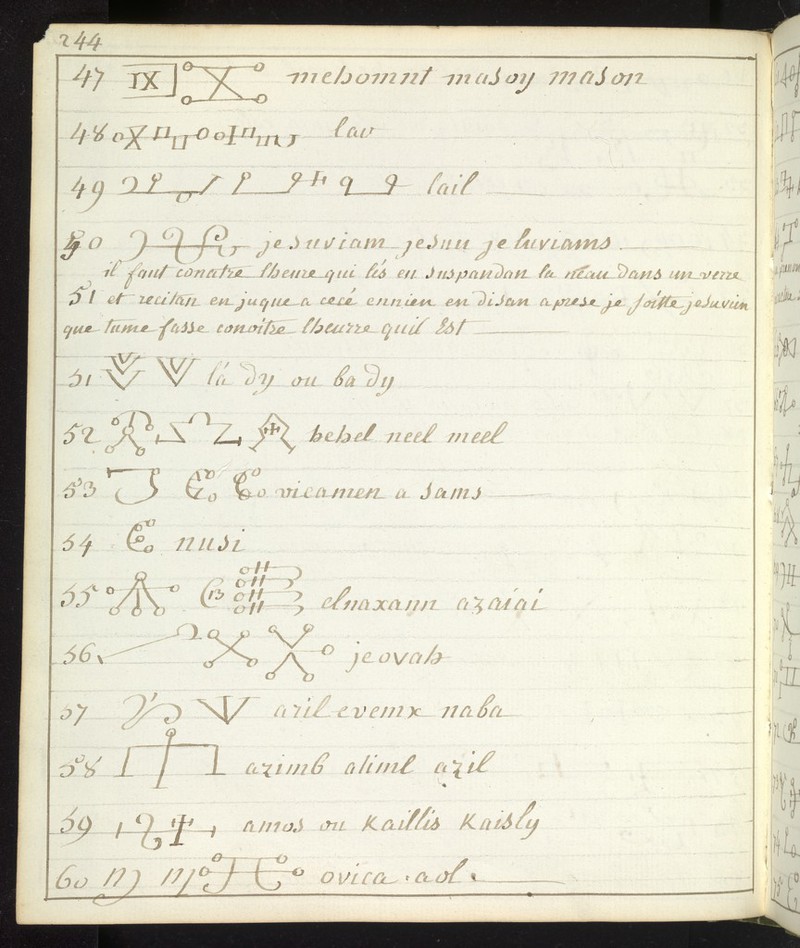 244
47 IX mehomnt masoy mason
48 lav
49 lail
50 jesuviam jesuu jeluviams
il faut conatre lheure qui lés en suspandan la neau dans un verre
51 et recitan en juque a cecé ennien en disan aprese je soitte jesuvien
que tume fasse conoitre lheurre quil Est
51 lá dy ou ba dy
52 hehel neel meel
53 vicamen a sams
54 nusi
55 13 elnaxann azaiai
56 jeovah
57 aril evemx naba
58 azimb aliml azil
59 amos ou Kaillis Kaisly
60 ovica aol